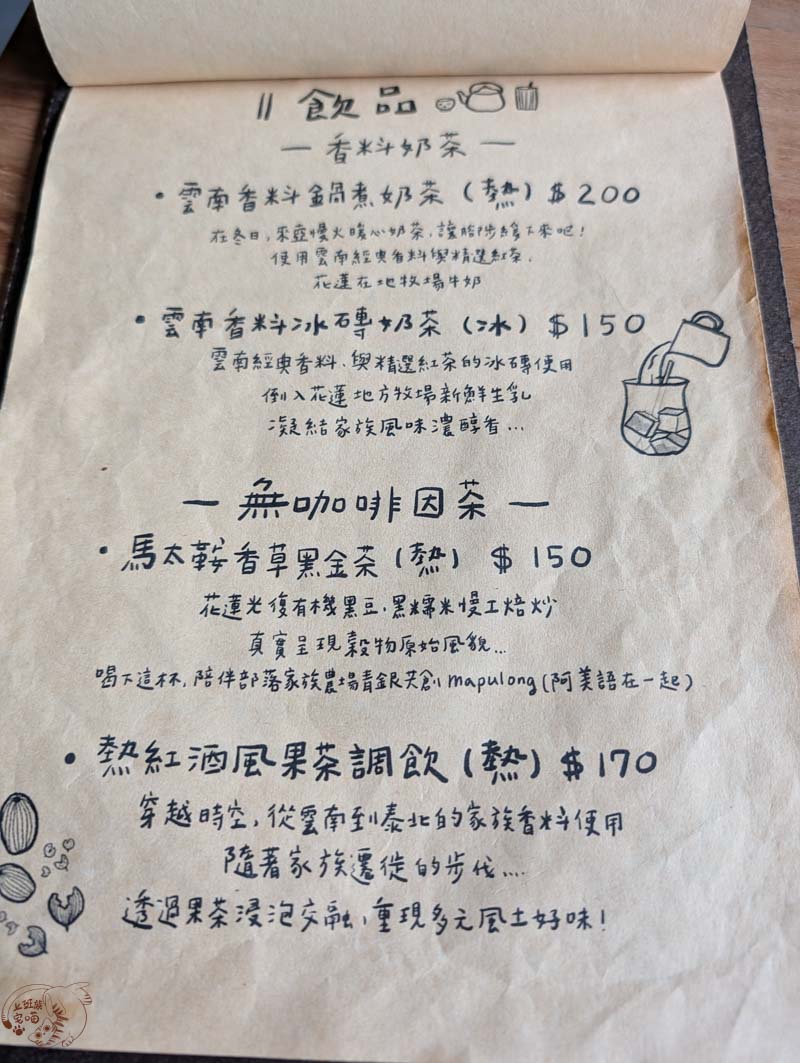 飲品
— 香料奶茶 —
• 雲南香料鍋煮奶茶（熱）$200
在冬日，來壺慢火暖心奶茶，讓腳步緩下來吧！
使用雲南經典香料與精選紅茶、
花蓮在地牧場牛奶
• 雲南香料冰磚奶茶（冰）$150
雲南經典香料、與精選紅茶的冰磚使用
倒入花蓮地方牧場新鮮生乳
凝結家族風味濃醇香...
— 無咖啡因茶 —
• 馬太鞍香草黑金茶（熱）$150
花蓮光復有機黑豆、黑糯米慢工焙炒
真實呈現穀物原始風貌...
喝下這杯，陪伴部落家族農場青銀共創 mapulong（阿美語在一起）
• 熱紅酒風果茶調飲（熱）$170
穿越時空，從雲南到泰北的家族香料使用
隨著家族遷徙的步伐...
透過果茶浸泡交融，重現多元風土好味！
上班族
宅喵